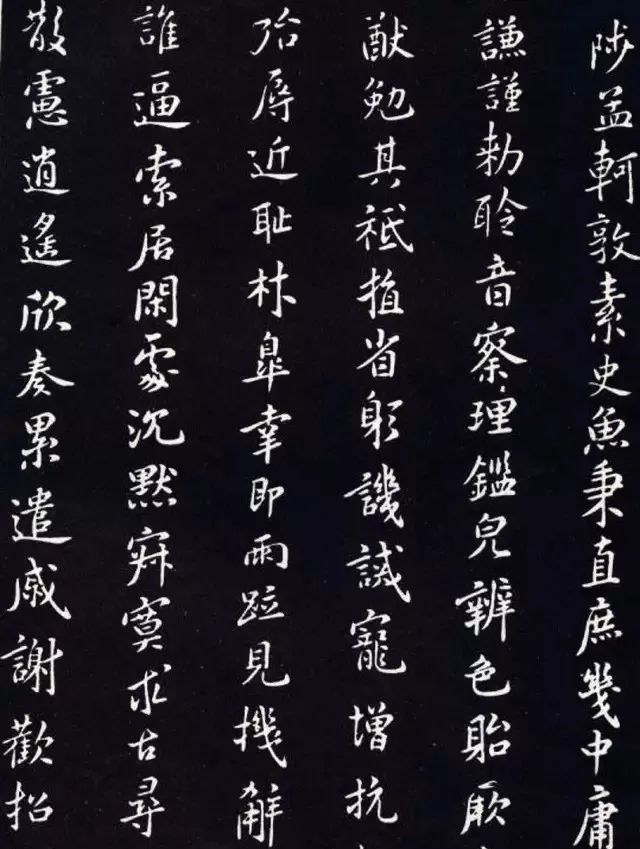 陟孟軻敦素史魚秉直庶幾中庸
謙謹勑聆音察理鑑皃辨色貽厥
猷勉其祗植省躬譏誡寵增抗
殆辱近耻林皐幸即兩疏見機解
誰逼索居閑處沉默寂寞求古尋
散慮逍遙欣奏累遣慼謝歡招